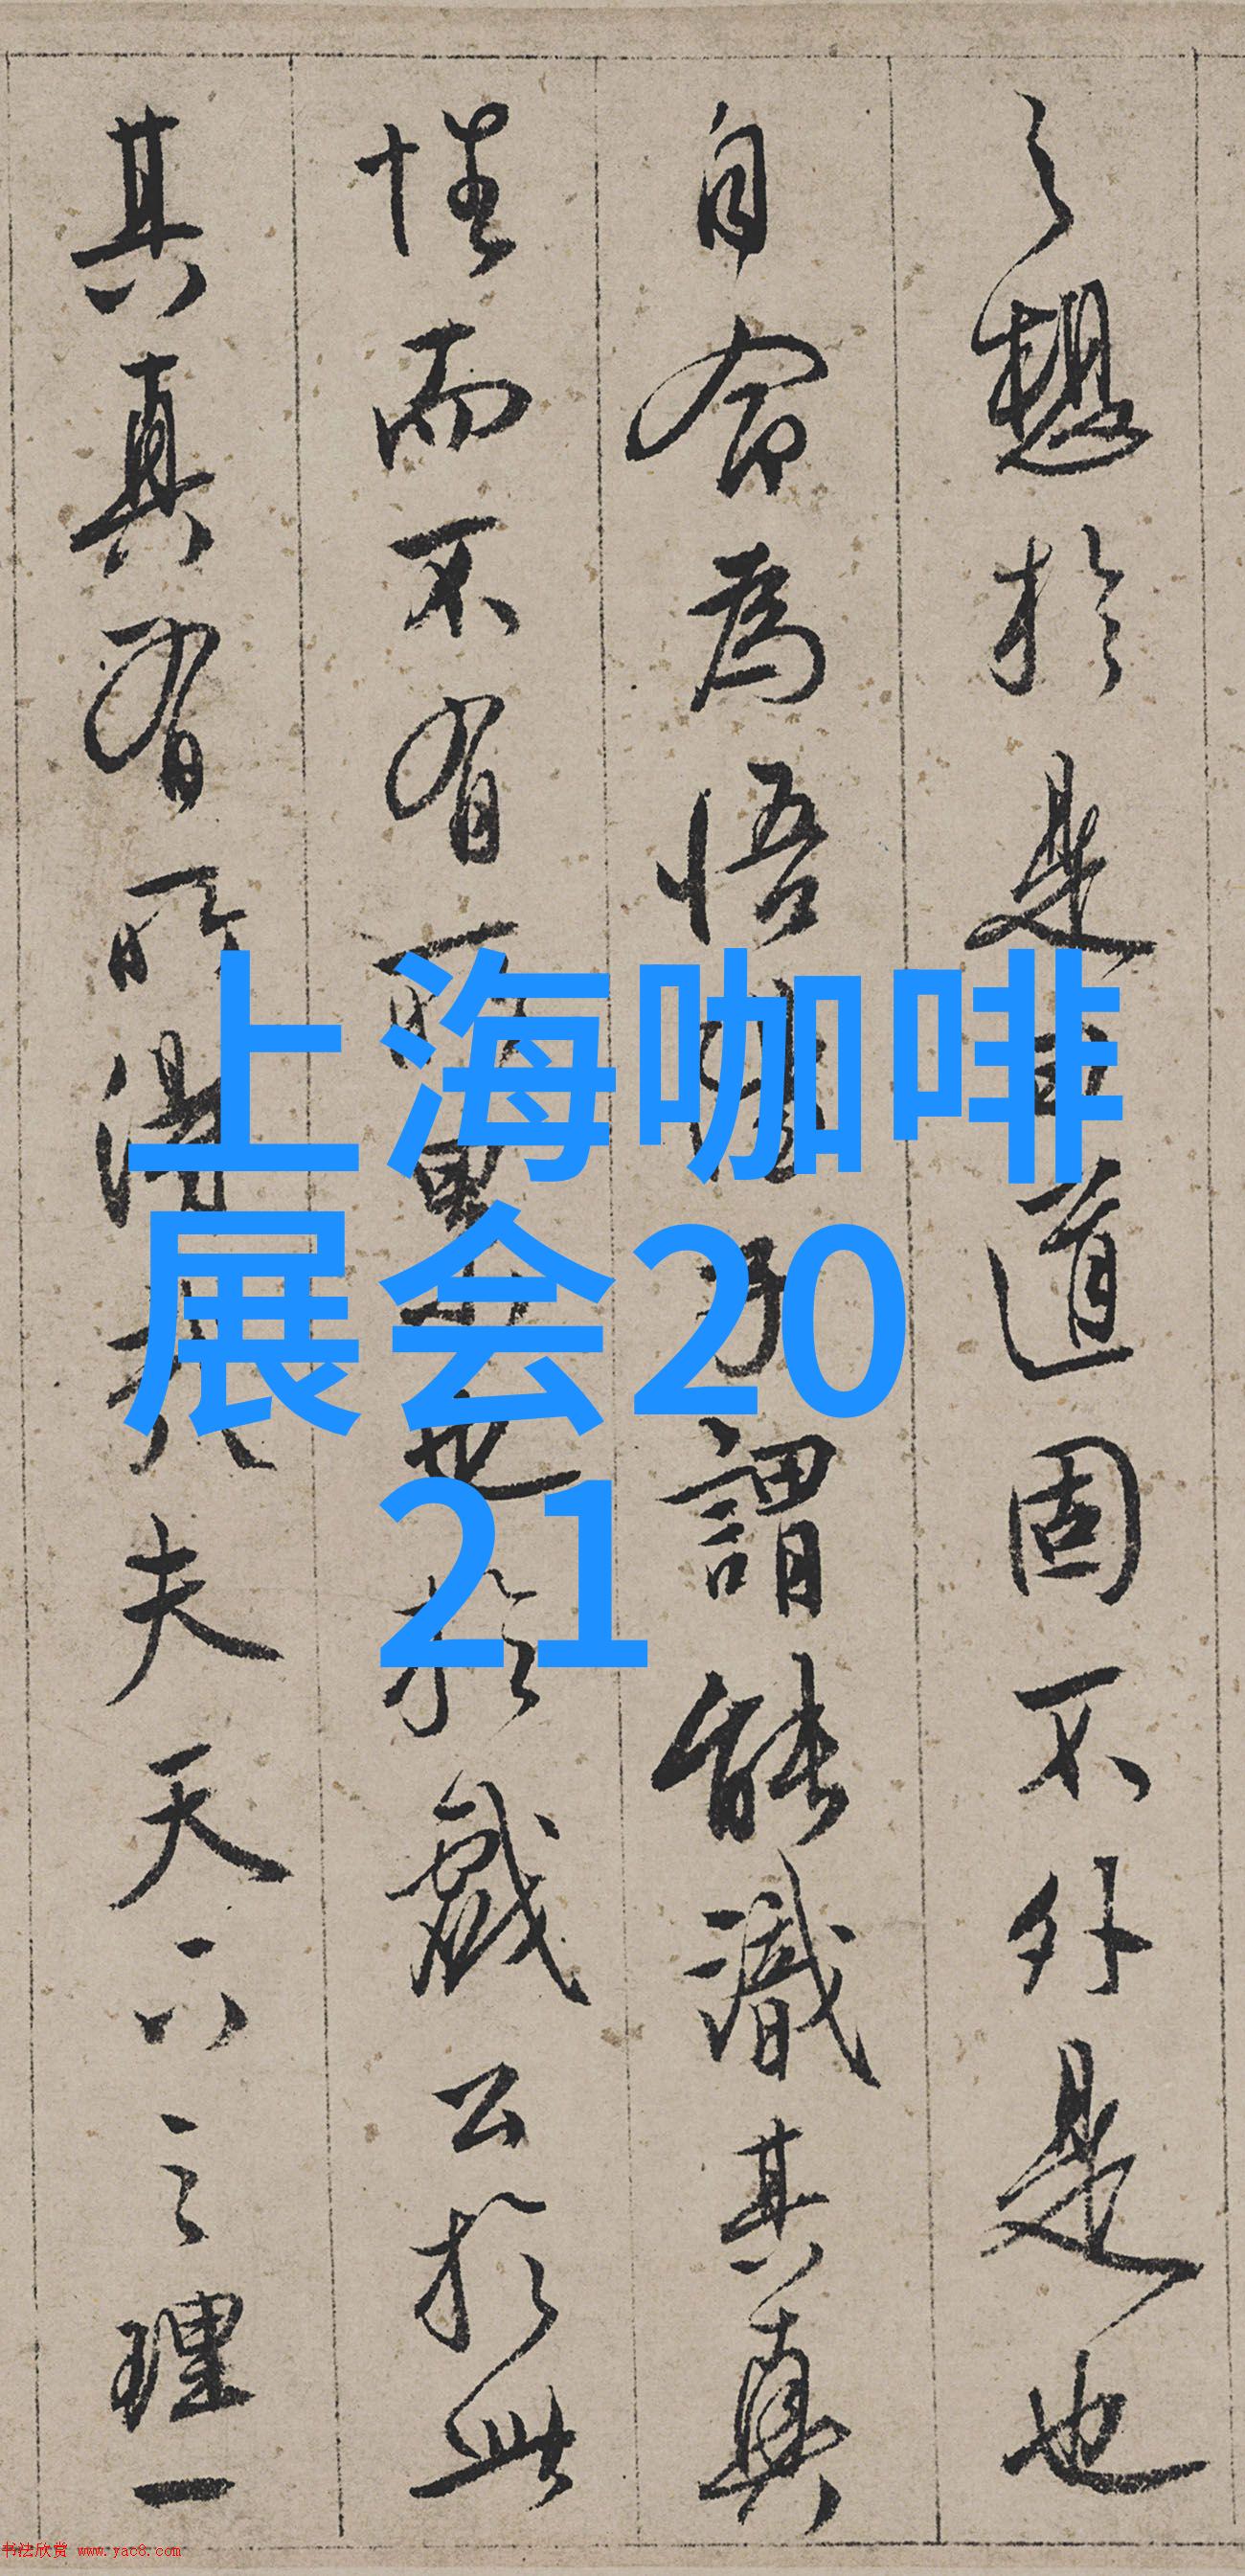 之想於是
道固不外是也
自命為悟
謂能識其真
性而不有
於戲公於此
其真有所得
夫天下之理一
上海咖啡
展会20
21
书法欣赏 www.yac8.com